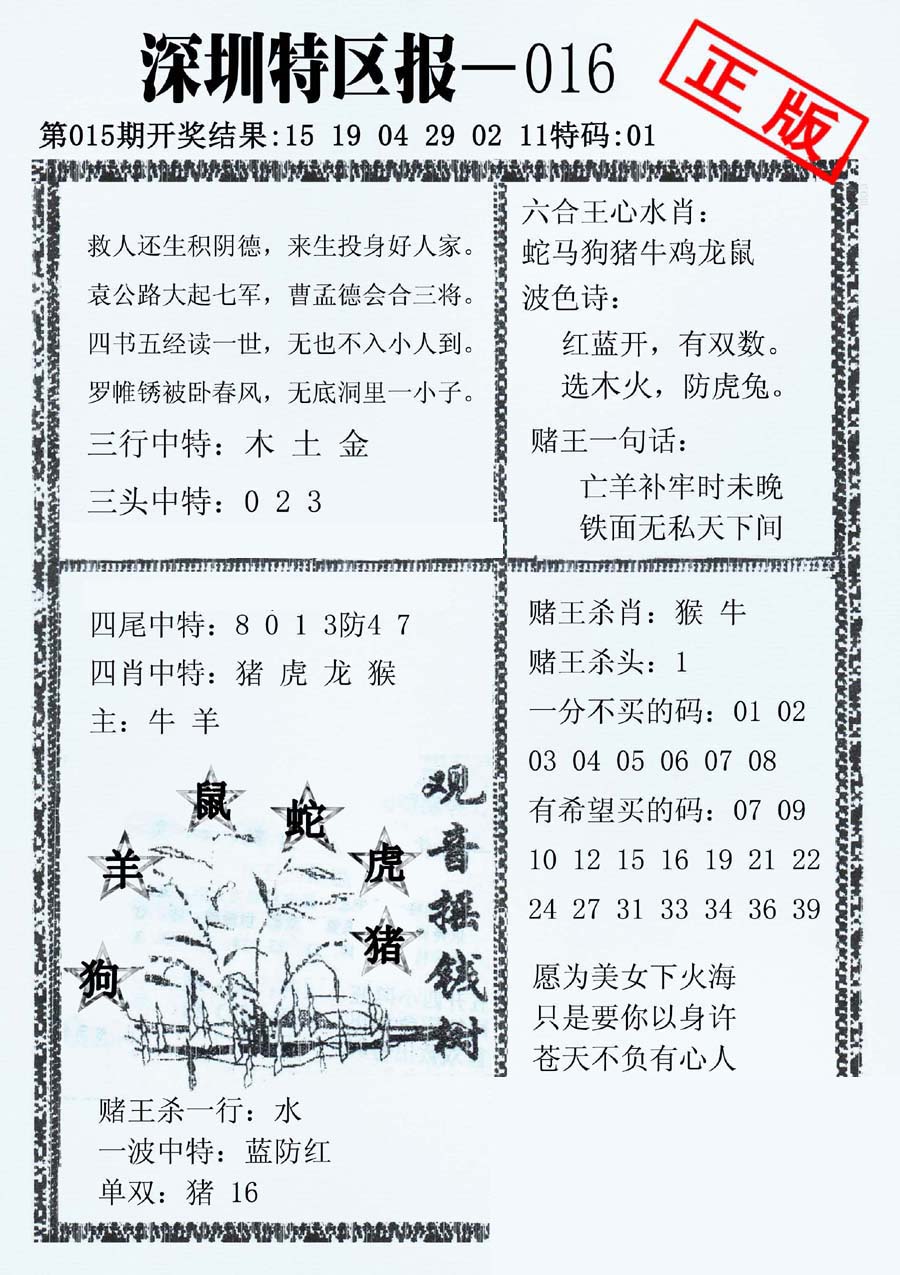 深圳特区报—016
正版
第015期开奖结果:15 19 04 29 02 11特码:01
救人还生积阴德，来生投身好人家。
袁公路大起七军，曹孟德会合三将。
四书五经读一世，无也不入小人到。
罗帷锈被卧春风，无底洞里一小子。
三行中特：木 土 金
三头中特：0 2 3
六合王心水肖：
蛇马狗猪牛鸡龙鼠
波色诗：
红蓝开，有双数。
选木火，防虎兔。
赌王一句话：
亡羊补牢时未晚
铁面无私天下间
四尾中特：8 0 1 3防4 7
四肖中特：猪 虎 龙 猴
主：牛 羊
鼠
蛇
羊
虎
猪
狗
观音摇钱树
赌王杀一行：水
一波中特：蓝防红
单双：猪 16
赌王杀肖：猴 牛
赌王杀头：1
一分不买的码：01 02
03 04 05 06 07 08
有希望买的码：07 09
10 12 15 16 19 21 22
24 27 31 33 34 36 39
愿为美女下火海
只是要你以身许
苍天不负有心人